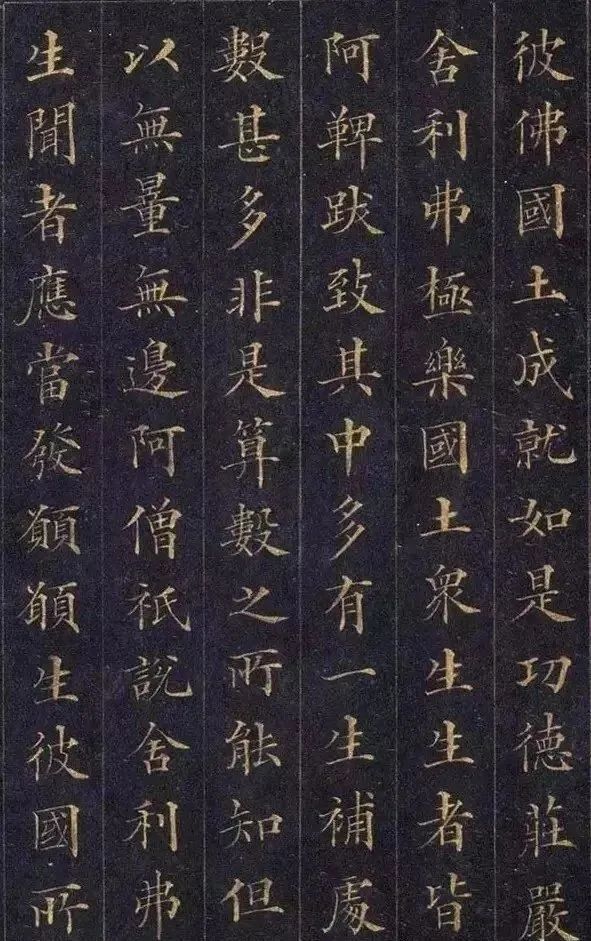 彼佛國土成就如是功德莊嚴
舍利弗極樂國土衆生生者皆
阿鞞跋致其中多有一生補處
數甚多非是算數之所能知但
以無量無邊阿僧祇說舍利弗
生聞者應當發願願生彼國所